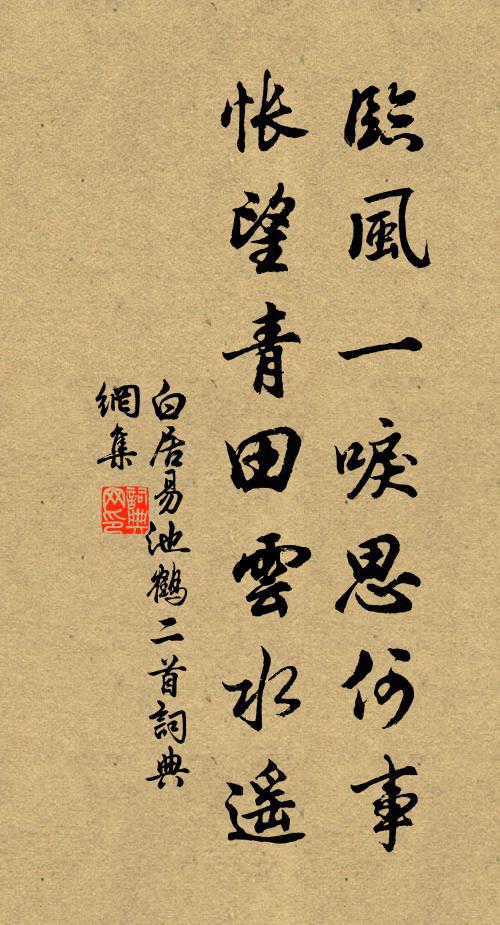 臨風一唳思何事
悵望青田雲水遥
白居易池鶴二首詞典
網集
詞典
网印